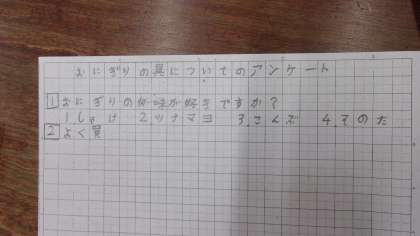 おにぎりの具についてのアンケート
1 おにぎりの何味が好きですか?
1.しゃけ 2.ツナマヨ 3.こんぶ 4.そのた
2 よく買